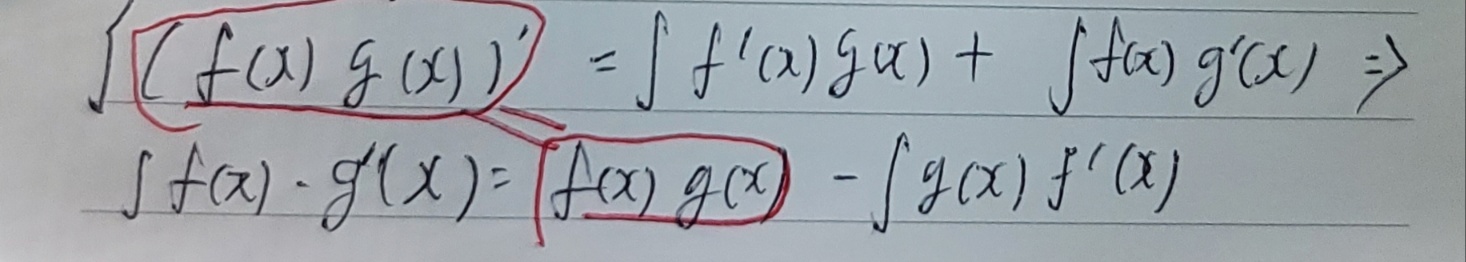 ∫(f(x) g(x))' = ∫f'(x) g(x) + ∫f(x) g'(x) ⇒
∫f(x) · g'(x) = f(x) g(x) - ∫g(x) f'(x)